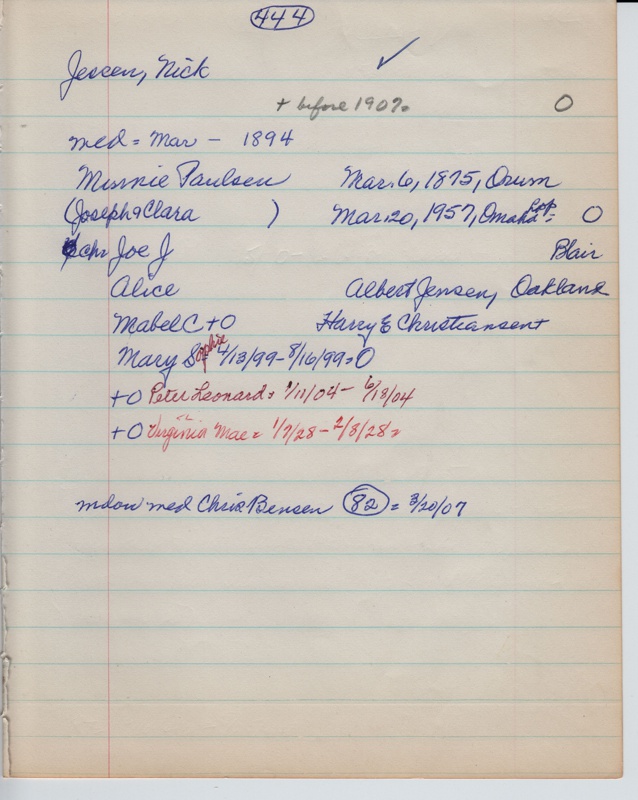 444
Jessen, Nick ✓
+ before 1907. O
med = Mar - 1894
Minnie Paulsen Mar. 6, 1875, Orum
(Joseph & Clara ) Mar. 20, 1957, Omaha = O
chr Joe J Blair
Alice Albert Jensen, Oakland
Mabel C + O Harry E Christiansen +
Mary Sophie = 4/13/99 - 8/16/99 = O
+ O Peter Leonard = 1/11/04 - 6/18/04
+ O Virginia Mae = 1/7/28 - 2/8/28 =
med Chris Bensen 82 = 3/20/07